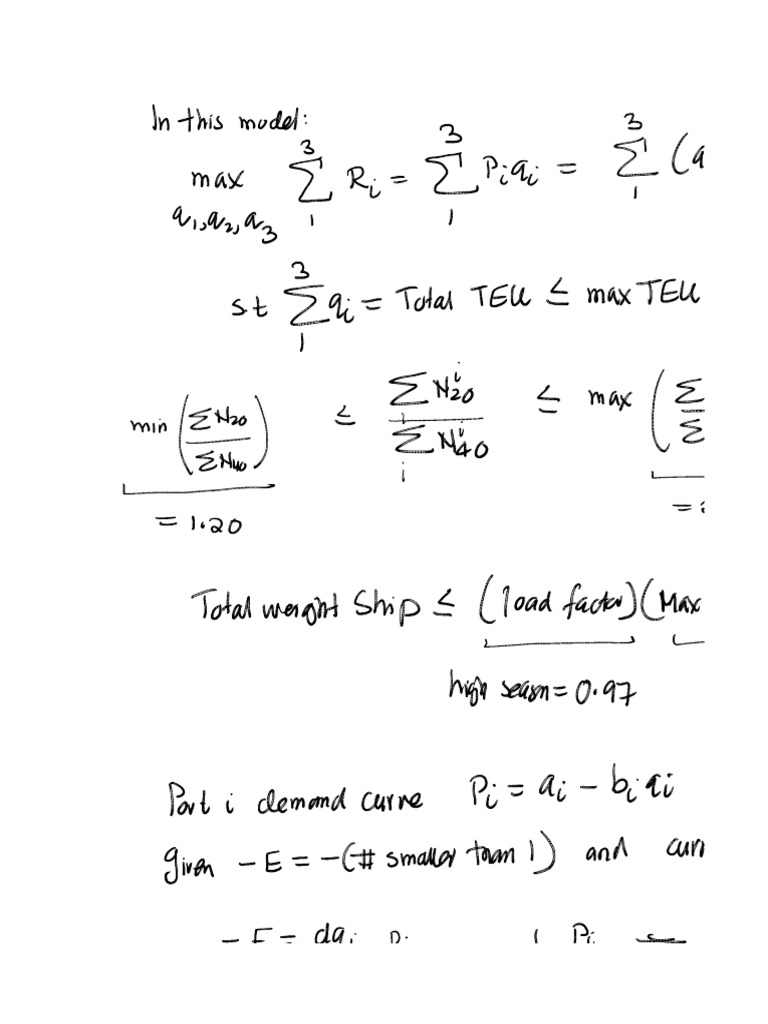 In this model:
max ∑ 3 1 R_i = ∑ 3 1 P_i q_i = ∑ 3 1 (a
q_1, q_2, q_3
s.t ∑ 3 1 q_i = Total TEU ≤ max TEU
min (∑N_20 / ∑N_40) ≤ ∑_i N^i_20 / ∑_i N^i_40 ≤ max (∑ / ∑
= 1.20 =
Total weight Ship ≤ (load factor)(Max
high season = 0.97
Port i demand curve P_i = a_i - b_i q_i
given - E = -(# smaller than 1) and curr
- E = dq_i P_i